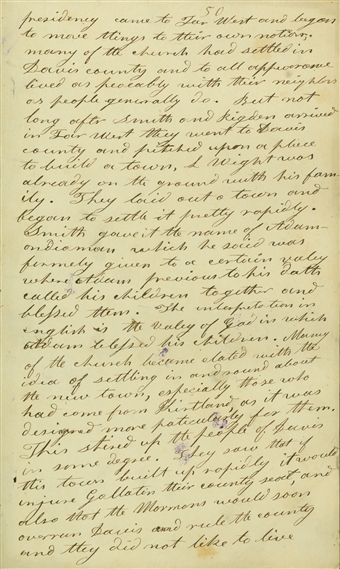 56
presidency came to Far West and began
to move things to their own notion.
many of the church had settled in
Davis county and to all appearance
lived as peacably with their neighbors
as people generally do. But not
long after Smith and Rigdon arrived
in Far West they went to Davis
county and pitched upon a place
to build a town, L Wight was
already on the ground with his fam-
ily. They laid out a town and
began to settle it pretty rapidly.
Smith gave it the name of Adam-
ondiaman which he said was
formely given to a certain valey
where Adam previous to his dath
called his children together and
blessed them. The interpetation in
english is the valey of God in which
Adam blessed his children. Many
of the church became elated with the
idea of settling in and round about
the new town, especially those who
had come from Kirtland, as it was
designed more paticularly for them.
This stired up the people of Davis
in some degree. They saw that if
this town built up rapidly it would
injure Gallaten their county seat, and
also that the Mormons would soon
overrun Davis and rule the county
and they did not like to live